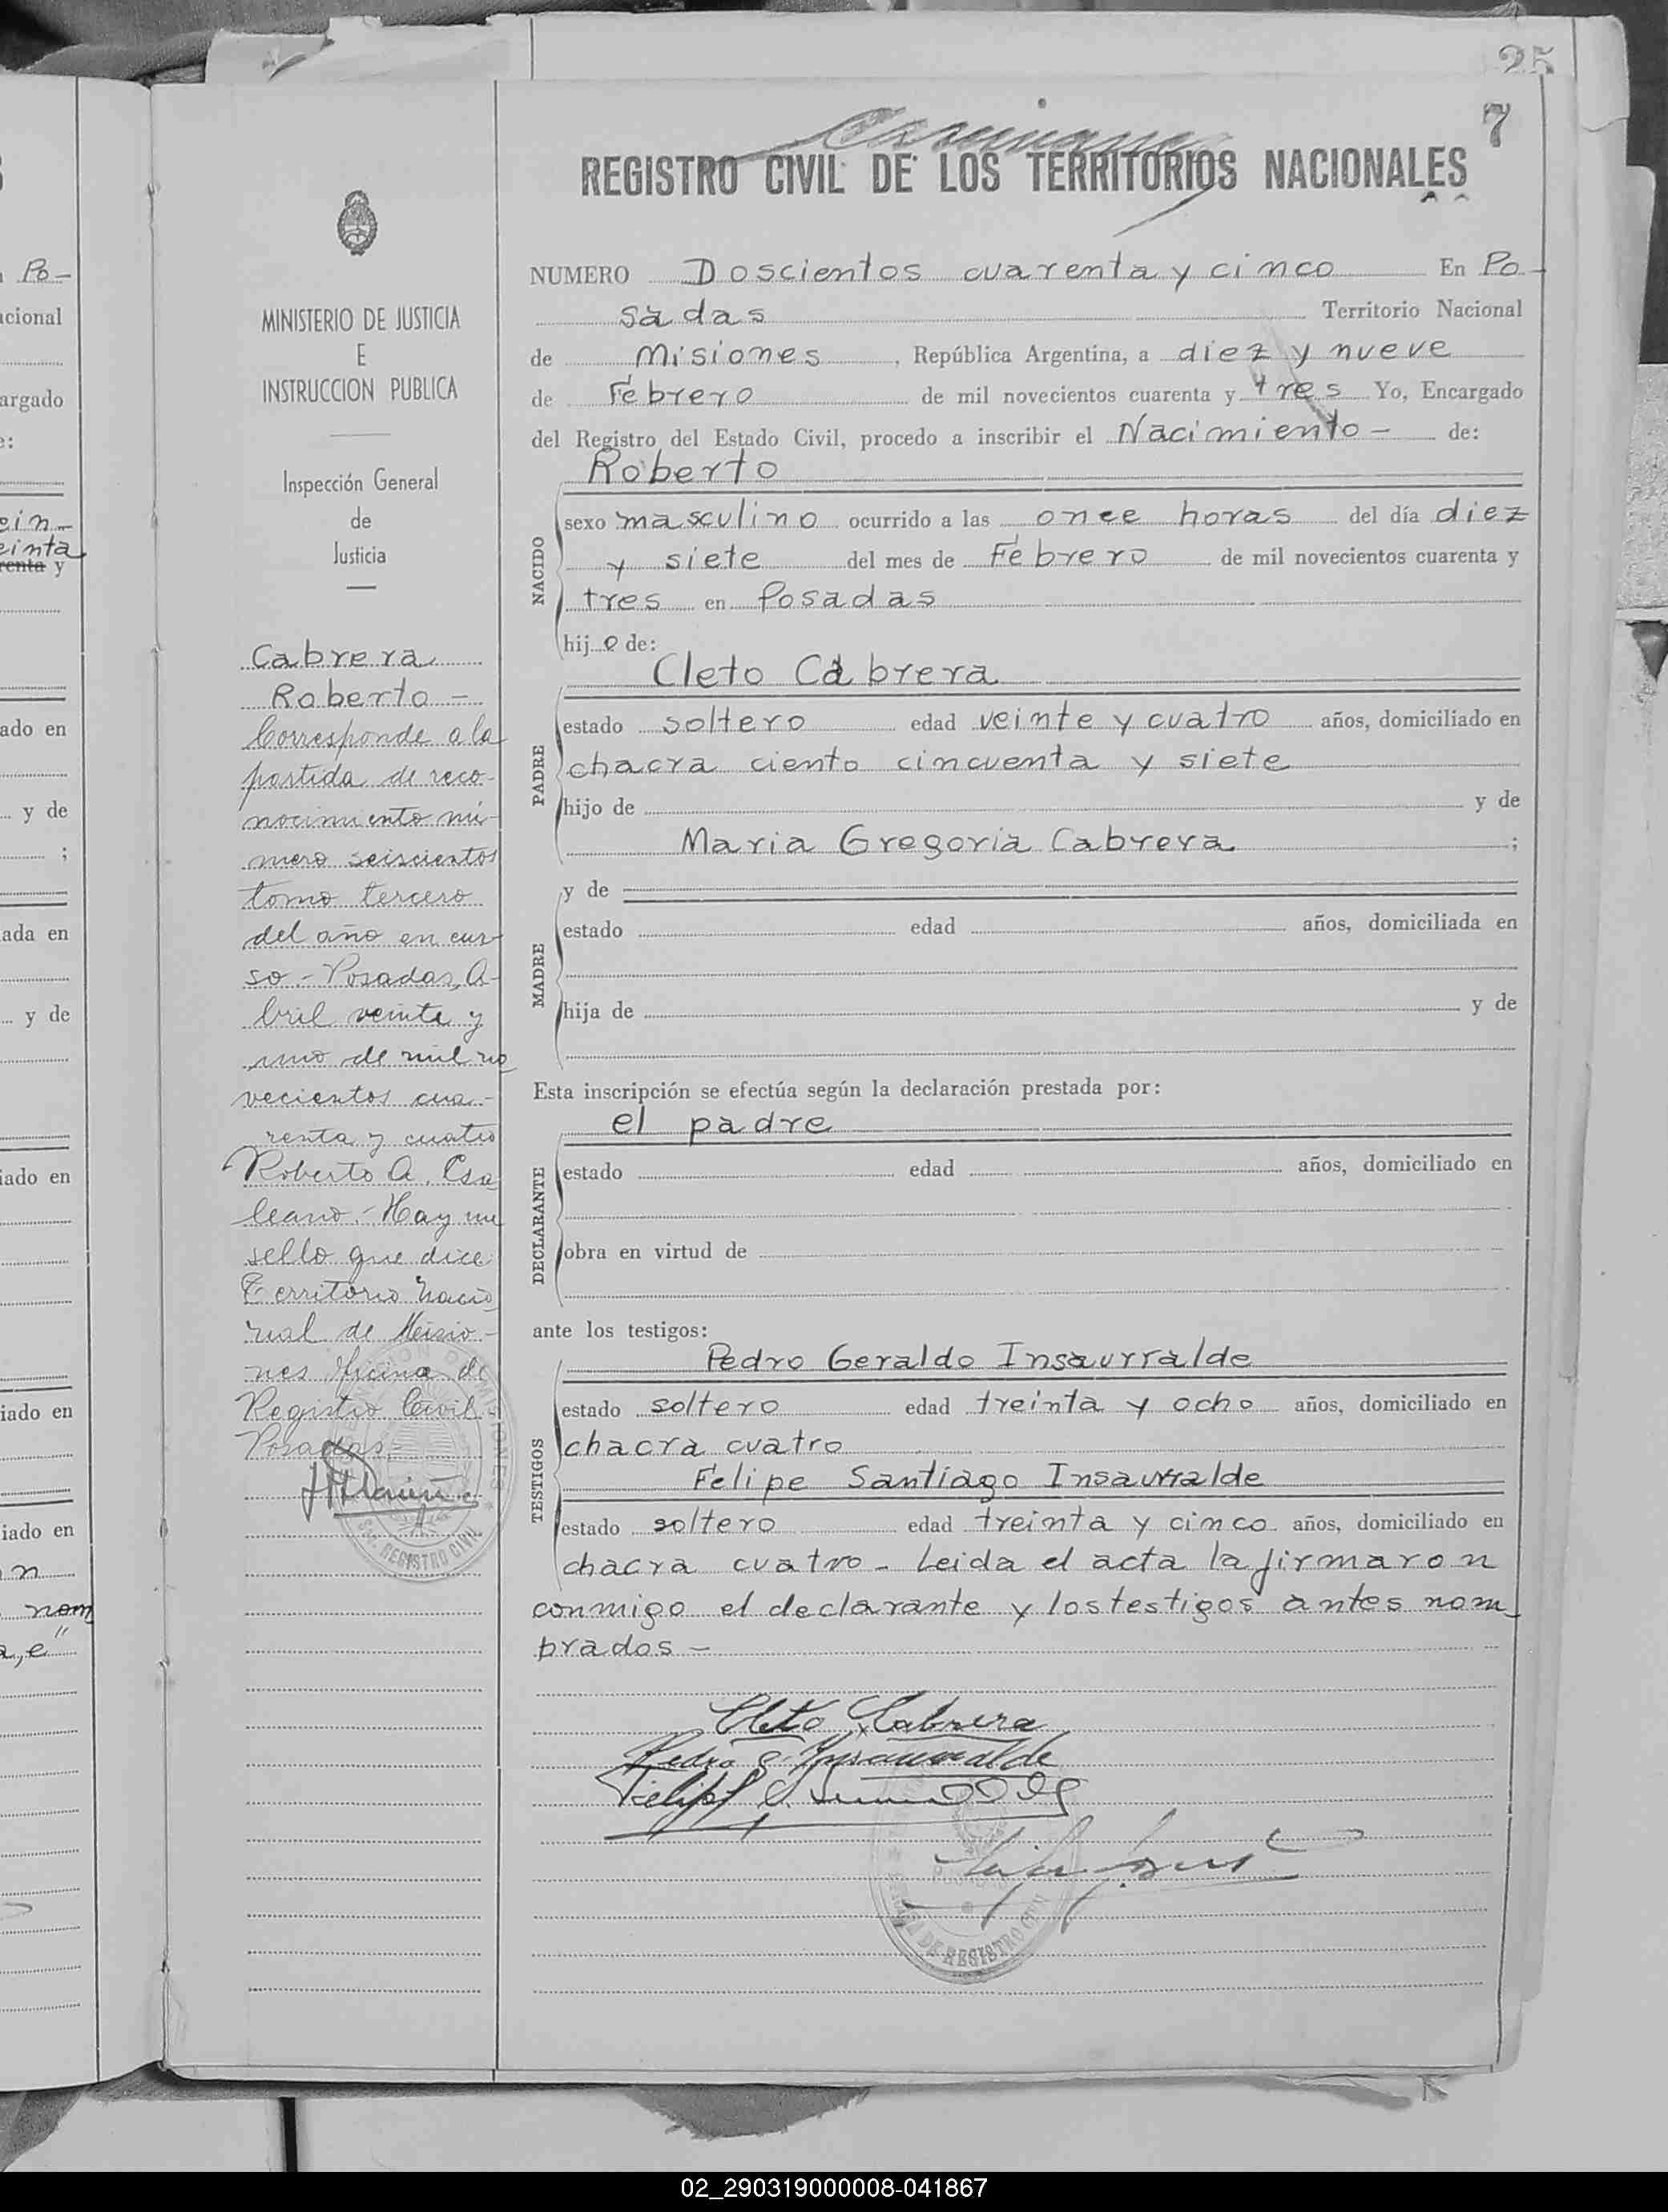 25
7
REGISTRO CIVIL DE LOS TERRITORIOS NACIONALES
MINISTERIO DE JUSTICIA
E
INSTRUCCION PUBLICA
Inspección General
de
Justicia
Cabrera
Roberto -
Corresponde a la
partida de reco-
nocimiento nú-
mero seiscientos
tomo tercero
del año en cur-
so.- Posadas, A-
bril veinte y
uno de mil no
vecientos cua-
renta y cuatro
Roberto A.
Hay un
sello que dice
Territorio Nacio
nal de Misio-
nes Oficina de
Registro Civil -
Posadas.-
REGISTRO CIVIL
NUMERO Doscientos cuarenta y cinco En Po-
sadas Territorio Nacional
de Misiones, República Argentina, a diez y nueve
de Febrero de mil novecientos cuarenta y tres Yo, Encargado
del Registro del Estado Civil, procedo a inscribir el Nacimiento - de:
Roberto
NACIDO
sexo masculino ocurrido a las once horas del día diez
y siete del mes de Febrero de mil novecientos cuarenta y
tres en Posadas
hijo de:
Cleto Cabrera
PADRE
estado soltero edad veinte y cuatro años, domiciliado en
chacra ciento cincuenta y siete
hijo de y de
Maria Gregoria Cabrera ;
y de
MADRE
estado edad años, domiciliada en
hija de y de
Esta inscripción se efectúa según la declaración prestada por:
el padre
DECLARANTE
estado edad años, domiciliado en
obra en virtud de
ante los testigos:
Pedro Geraldo Insaurralde
TESTIGOS
estado soltero edad treinta y ocho años, domiciliado en
chacra cuatro
Felipe Santiago Insaurralde
estado soltero edad treinta y cinco años, domiciliado en
chacra cuatro - Leida el acta la firmaron
conmigo el declarante y los testigos antes nom-
brados -
Cleto Cabrera
Pedro G. Ynsaurralde
Felipe S.
DE REGISTRO CIVIL
Po-
acional
argado
e:
ein-
einta
renta y
ado en
y de
;
ada en
y de
iado en
iado en
iado en
n
nom
a, e"
02_290319000008-041867